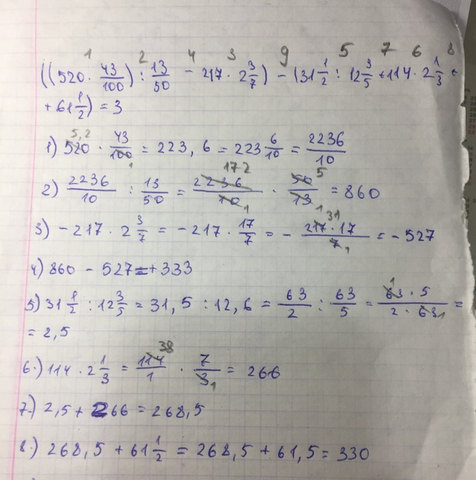 1 2 4 3 9 5 7 6 8
((520 · 43/100) : 13/50 - 217 · 2 3/7) - (31 1/2 : 12 3/5 + 114 · 2 1/3 +
+ 61 1/2) = 3
1) 520 5,2 · 43/100 1 = 223,6 = 223 6/10 = 2236/10
2) 2236/10 : 13/50 = 2236 172/10 1 · 50 5/13 1 = 860
3) - 217 · 2 3/7 = - 217 · 17/7 = - 217 31 · 17/7 1 = - 527
4) 860 - 527 = +333
5) 31 1/2 : 12 3/5 = 31,5 : 12,6 = 63/2 : 63/5 = 63 1 · 5/2 · 63 1 =
= 2,5
6.) 114 · 2 1/3 = 114 38/1 · 7/3 1 = 266
7.) 2,5 + 266 = 268,5
8.) 268,5 + 61 1/2 = 268,5 + 61,5 = 330